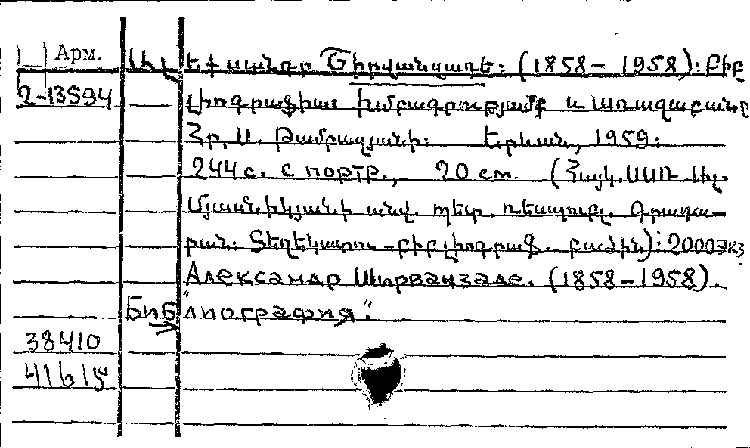 Арм.
Ալեքսանդր Շիրվանզադե: (1858-1958): Բիբ
2-13594
լիոգրաֆիա: Խմբագրությամբ և առաջաբանը
Հր. Ս. Թամրազյանի: Երևան, 1959:
244 с. с портр., 20 cm. (Հայկ. ՍՍՌ Ալ.
Մյասնիկյանի անվ. պետ. ռեսպուբլ. գրադա-
րան: Տեղեկատու-բիբլիոգրաֆ. բաժին): 2000экз
Александр Ширванзаде. (1858-1958).
Биб "лиография".
38410
41615